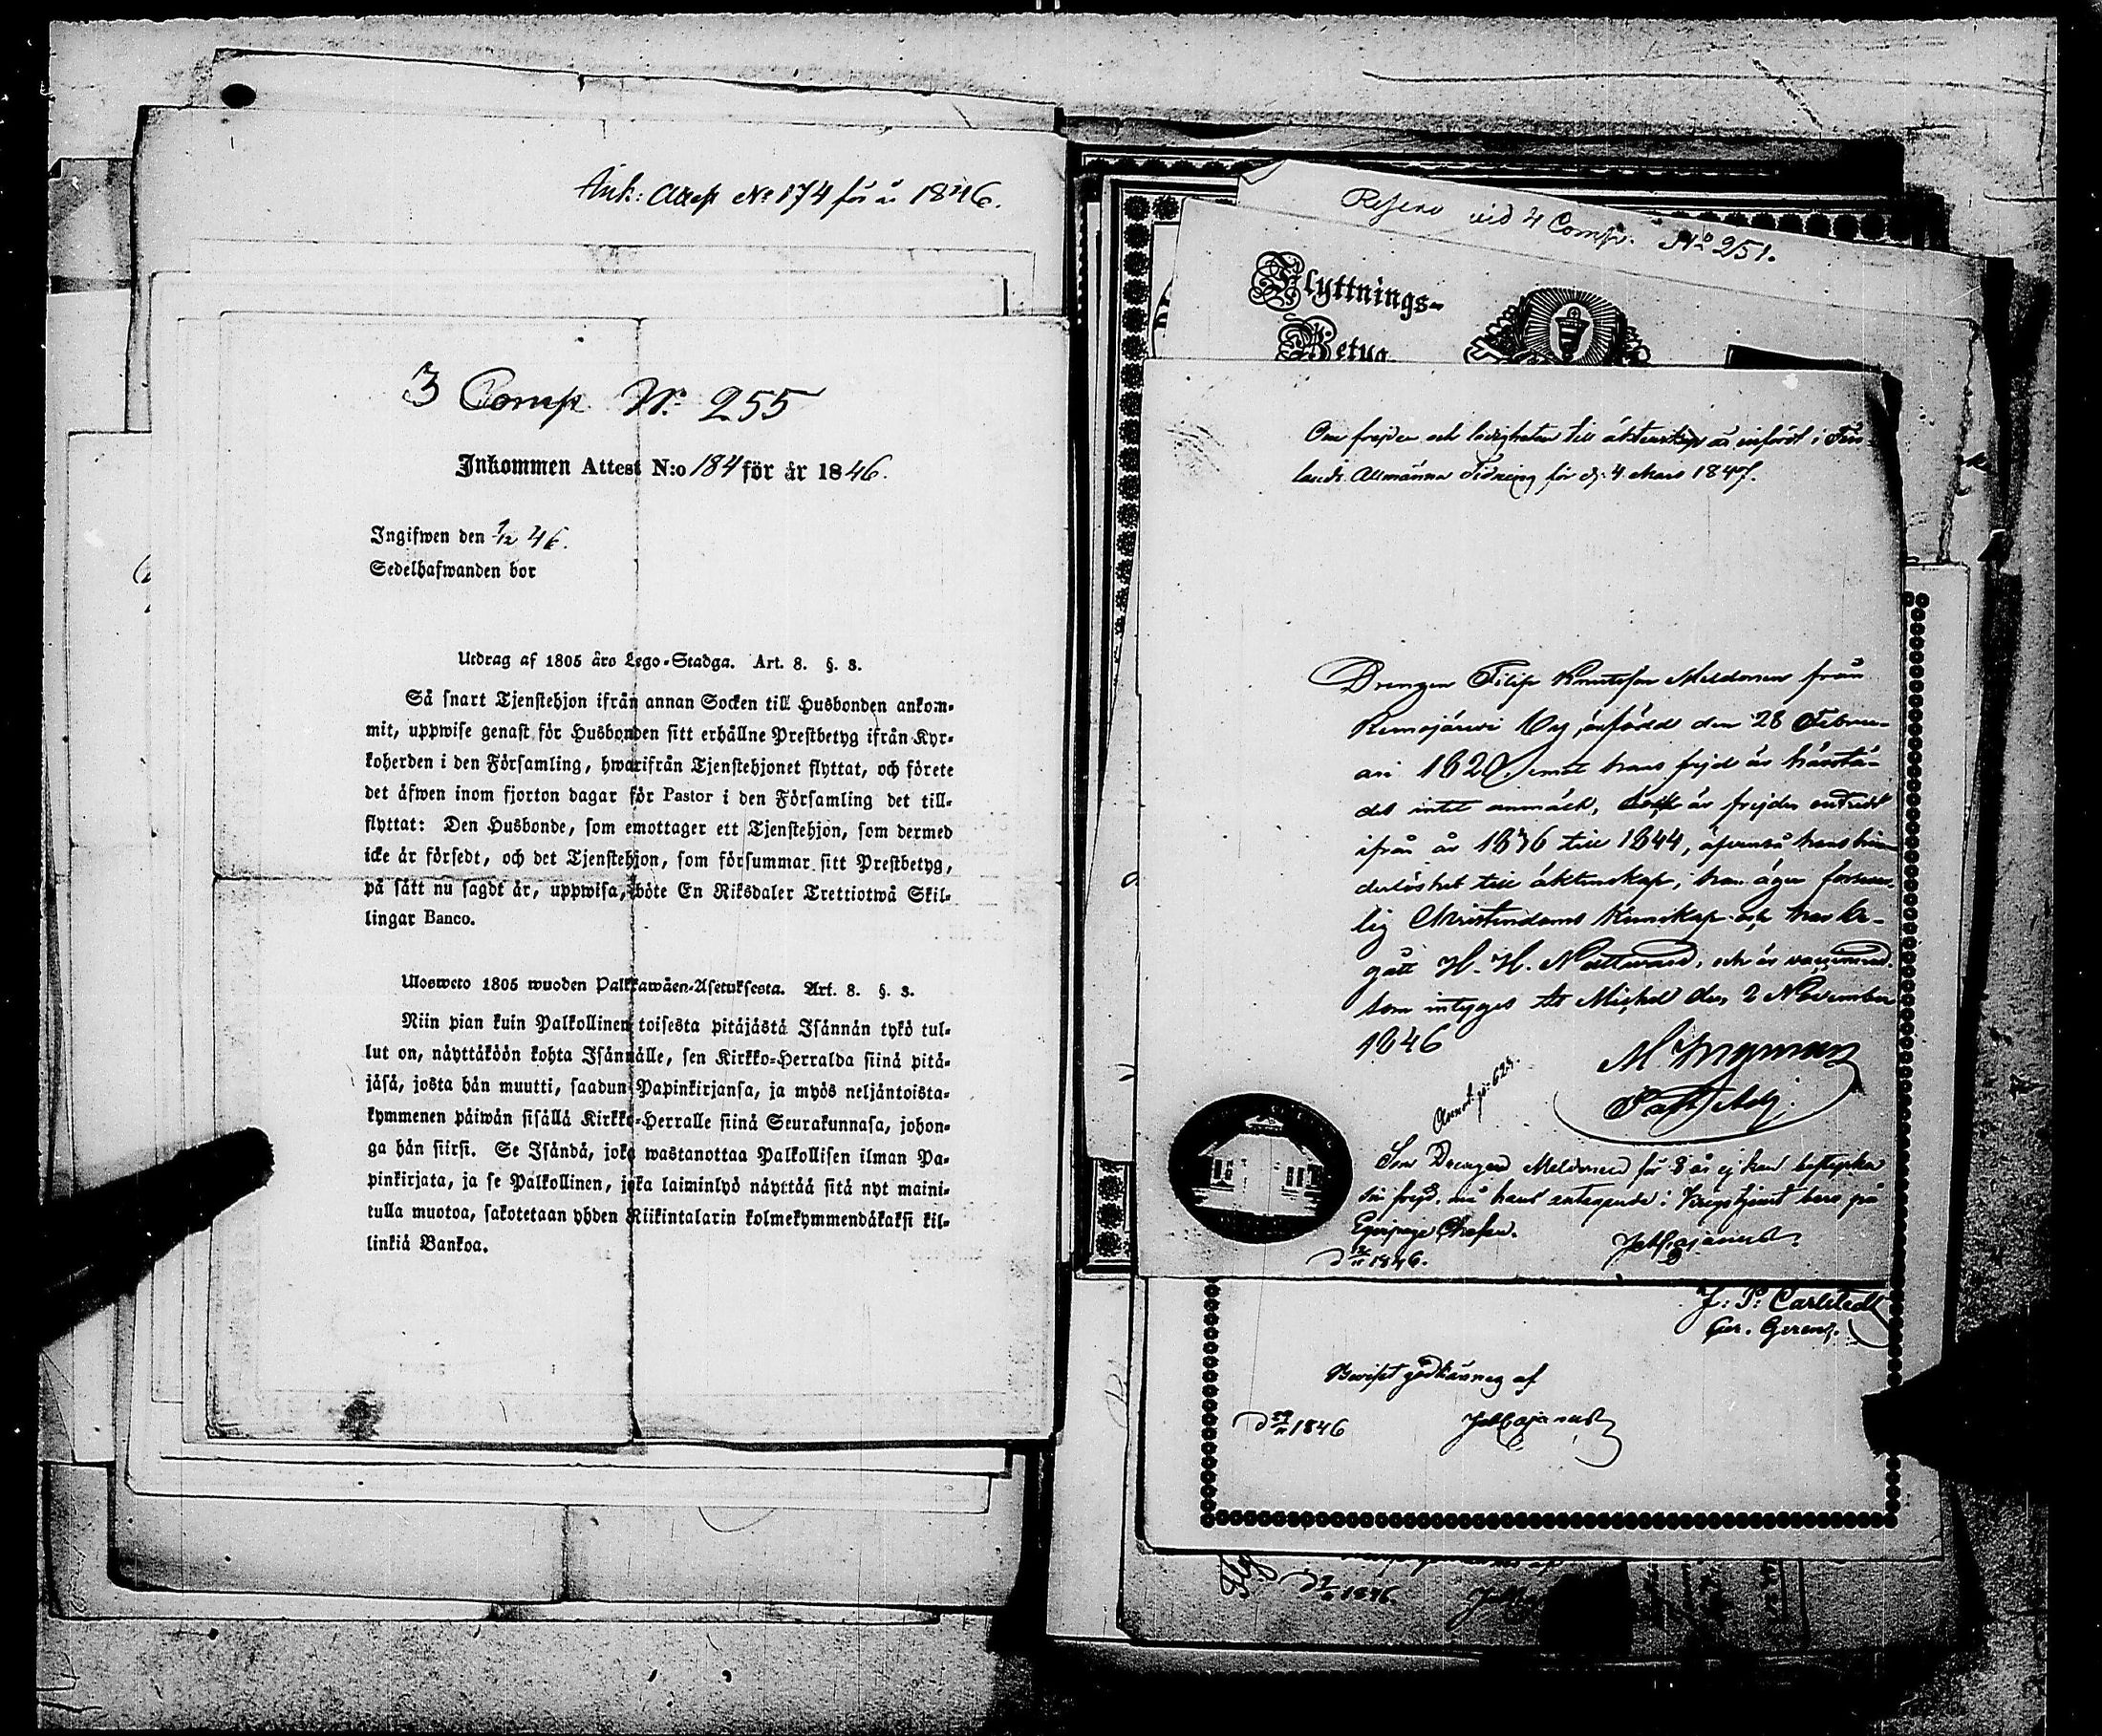 Ank: Attest No 174 för år 1846.
3 Comp. No 255
Inkommen Attest N:o 184 för år 1846.
Ingifwen den 1/12 46.
Sedelhafwanden bor
Utdrag af 1805 års Lego-Stadga. Art. 8. §. 3.
Så snart Tjenstehjon ifrån annan Socken till Husbonden ankom-
mit, uppwise genast för Husbonden sitt erhållne Prestbetyg ifrån Kyr-
koherden i den Församling, hwarifrån Tjenstehjonet flyttat, och förete
det äfwen inom fjorton dagar för Pastor i den Församling det till-
flyttat: Den Husbonde, som emottager ett Tjenstehjon, som dermed
icke är försedt, och det Tjenstehjon, som försummar sitt Prestbetyg,
på sätt nu sagdt är, uppwisa, böte En Riksdaler Trettiotwå Skil-
lingar Banco.
Ulosweto 1805 wuoden Palkkawäen-Asetuksesta. Art. 8. §. 3.
Niin pian kuin Palkollinen toisesta pitäjästä Isännän tykö tul-
lut on, näyttäköön kohta Isännälle, sen Kirkko-Herralda siinä pitä-
jäsä, josta hän muutti, saadun Papinkirjansa, ja myös neljäntoista-
kymmenen päiwän sisällä Kirkko-Herralle siinä Seurakunnasa, johon-
ga hän siirsi. Se Isändä, joka wastanottaa Palkollisen ilman Pa-
pinkirjata, ja se Palkollinen, joka laiminlyö näyttää sitä nyt maini-
tulla muotoa, sakotetaan yhden Riikintalarin kolmekymmendäkaksi kil-
linkiä Bankoa.
Reserv vid 4 Comp. No 251.
Flyttnings-
Betyg
Om frejden och ledigheten till äktenskap är infördt i Fin-
lands Allmänna Tidning för d. 4 Mars 1847.
Drengen Filip Knutsson Meldonen från
Remojärvi By, är född den 28 Februa-
ari 1820, emot hans frejd är härstä-
des intet anmäldt, dock är frejden outredd
ifrån år 1836 till 1844, äfvenså hans hin-
derlöshet till äktenskap, han äger försvar-
lig Christendoms Kunskap och har be-
gått H. H. Nattvard, och är vaccinerad.
Som intygas St Michel den 2 November
1846
M Ingman
Past. Adj.
Som Drengen Meldonen för 8 år ej kan bestyrka
sin frejd, må hans antagande i Krigstjenst bero på
Equipage Chefen.
1846.
J: P: Carlstedt
Ger. Gerens.
Beviset godkännes af
d 29/11 1846
1846.